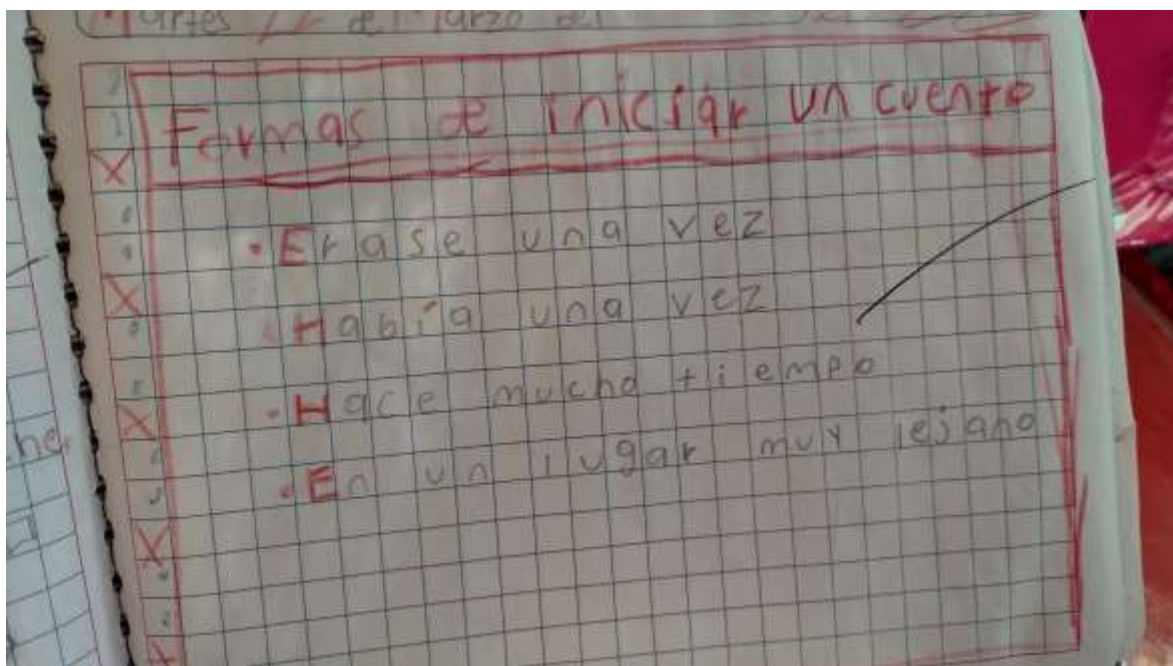 Martes de Marzo del
Formas de iniciar un cuento
• Erase una vez
• Había una vez
• Hace mucho tiempo
• En un lugar muy lejano
he.